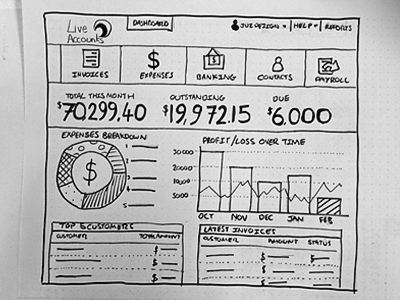 Live
Accounts
DASHBOARD
HELP
REPORTS
INVOICES
EXPENSES
BANKING
CONTACTS
PAYROLL
TOTAL THIS MONTH OUTSTANDING DUE
$70,299.40 $19,972.15 $6,000
EXPENSES BREAKDOWN
$
1
2
3
4
5
PROFIT/LOSS OVER TIME
30000
20000
10000
5000
OCT NOV DEC JAN FEB
TOP 5 CUSTOMERS
CUSTOMER TOTAL AMOUNT
$
$
$
LATEST INVOICES
CUSTOMER AMOUNT STATUS
$
$
$